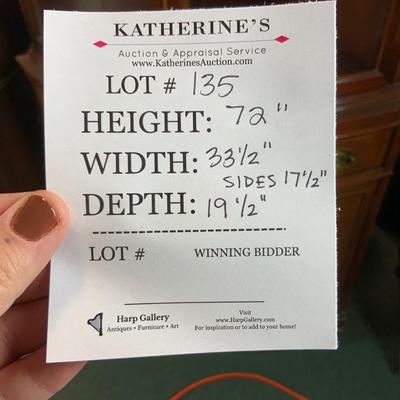 KATHERINE'S
Auction & Appraisal Service
www.KatherinesAuction.com
LOT # 135
HEIGHT: 72"
WIDTH: 33 1/2"
SIDES 17 1/2"
DEPTH: 19 1/2"
LOT # WINNING BIDDER
Harp Gallery
Antiques • Furniture • Art
Visit
www.HarpGallery.com
For inspiration or to add to your home!